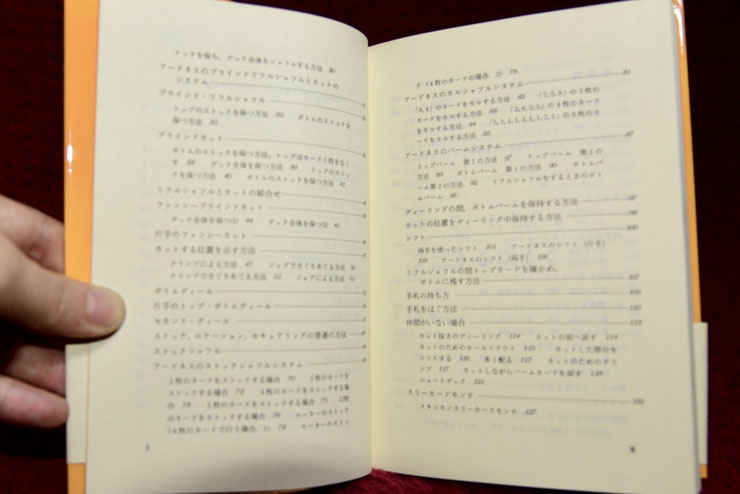 トックを保ち，デック全体をシャフルする方法 30
アードネスのブラインドリフルシャフルとカットの
システム
ブラインド・リフルシャフル
トップのストックを保つ方法 32 ボトムのストックを
保つ方法 35
ブラインドカット
ボトムのストックを保つ方法，トップはカード1枚をなく
す 38 デック全体を保つ方法 39 トップのストッ
クを保つ方法 40 ボトムのストックを保つ方法 41
リフルシャフルとカットの組合せ
ファンシーブラインドカット
デック全体を保つ(1) 44 デック全体を保つ(2) 45
片手のファンシーカット
カットする位置を示す方法
クリンプによる方法 47 ジョグでさぐりあてる方法 50
クリンプでさぐりあてる方法 51 ジョグによる方法 51
ボトムディール
片手のトップ・ボトムディール
セカンド・ディール
ストック，ロケーション，セキュアリングの普通の方法
ストックシャフル
アードネスのストックシャフルシステム
2枚のカードをストックする場合 70 3枚のカードを
ストックする方法 72 4枚のカードをストックする場
合 73 5枚のカードをストックする場合 75 12枚
のカードをストックする場合 76 ユーカーのストック
(4枚のカードで行う場合，1) 78 ユーカーのストッ
ク (4枚のカードの場合，2) 79
アードネスのカルシャフルシステム 81
「8, 4」のカードをカルする方法 82 「7, 5, 9」の3枚の
カードをカルする方法 83 「3, 6, 2, 5」の4枚のカード
をカルする方法 84 の9枚のカ
ードをカルする方法 85
アードネスのパームシステム 87
トップパーム 第1の方法 87 トップパーム 第2の
方法 89 ボトムパーム 第1の方法 90 ボトムパ
ーム第2の方法 92 リフルシャフルをするときのボト
ムパーム 95
ディーリングの間，ボトムパームを保持する方法 97
カットの位置をディーリング中保持する方法 98
シフト 100
両手を使ったシフト 101 アードネスのシフト (片手)
103 アードネスのシフト (両手) 106
リフルシャフルの間トップカードを確かめ，
ボトムに残す方法 107
手札の持ち方 109
手札をはぐ方法 110
仲間がいない場合 113
カット抜きのディーリング 114 カットの前へ戻す 114
カットのためのホールドアウト 115 カットした部分を
シフトする 116 多く配る 117 カットのためのクリ
ンプ 117 カットしながらパームカードを戻す 118
ショートデック 121
スリーカードモンテ 122
メキシカンスリーカードモンテ 127